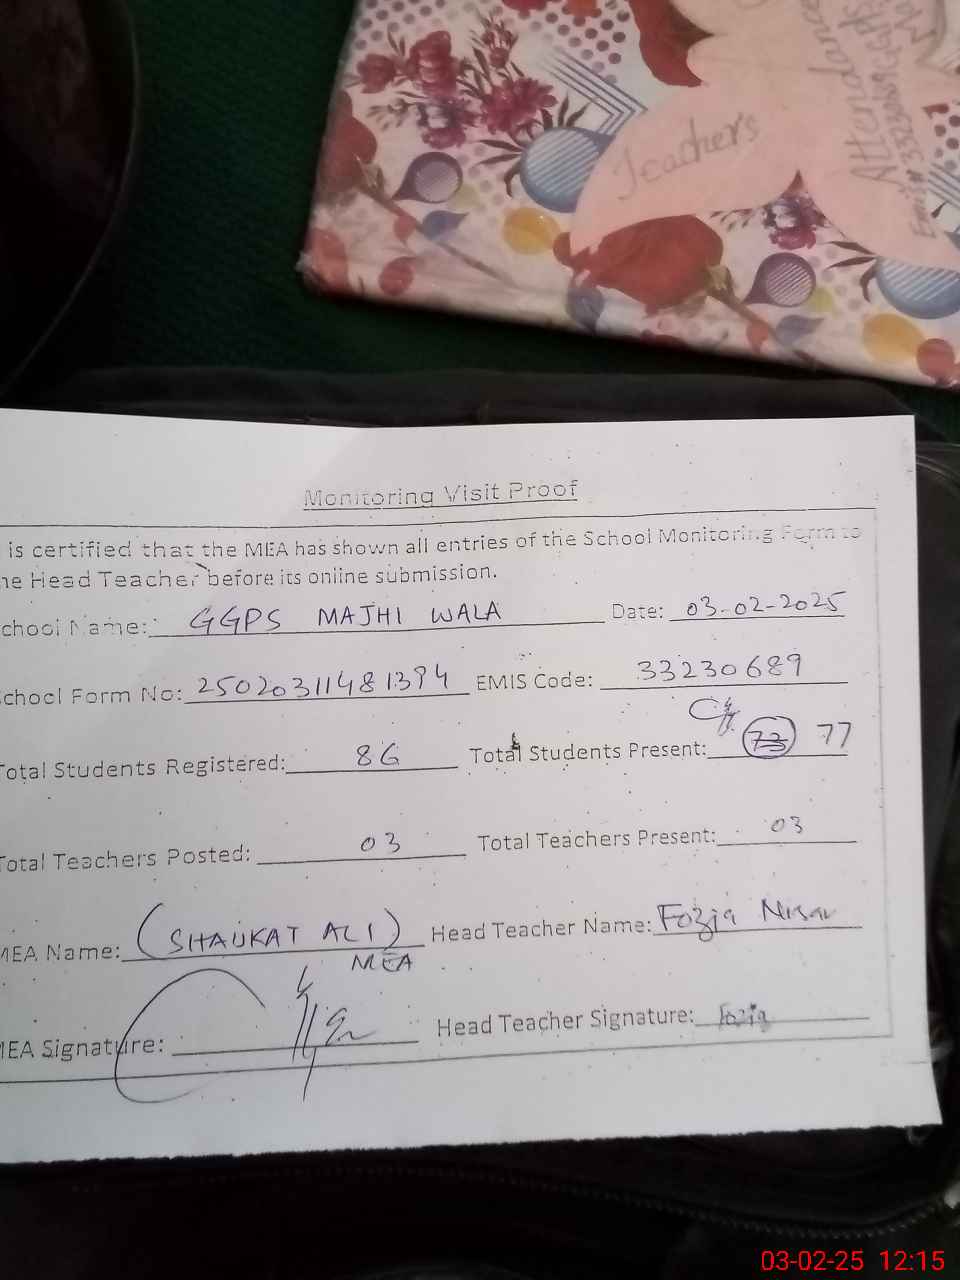 Teachers
Attendance
Monitoring Visit Proof
is certified that the MEA has shown all entries of the School Monitoring Form to
he Head Teacher before its online submission.
chool Name: GGPS MAJHI WALA Date: 03-02-2025
chool Form No: 25020311481394 EMIS Code: 33230689
Total Students Registered: 86 Total Students Present: 73 77
Total Teachers Posted: 03 Total Teachers Present: 03
MEA Name: (SHAUKAT ALI) Head Teacher Name: Fozia Nisar
MEA
MEA Signature: Head Teacher Signature: Fozia
03-02-25 12:15